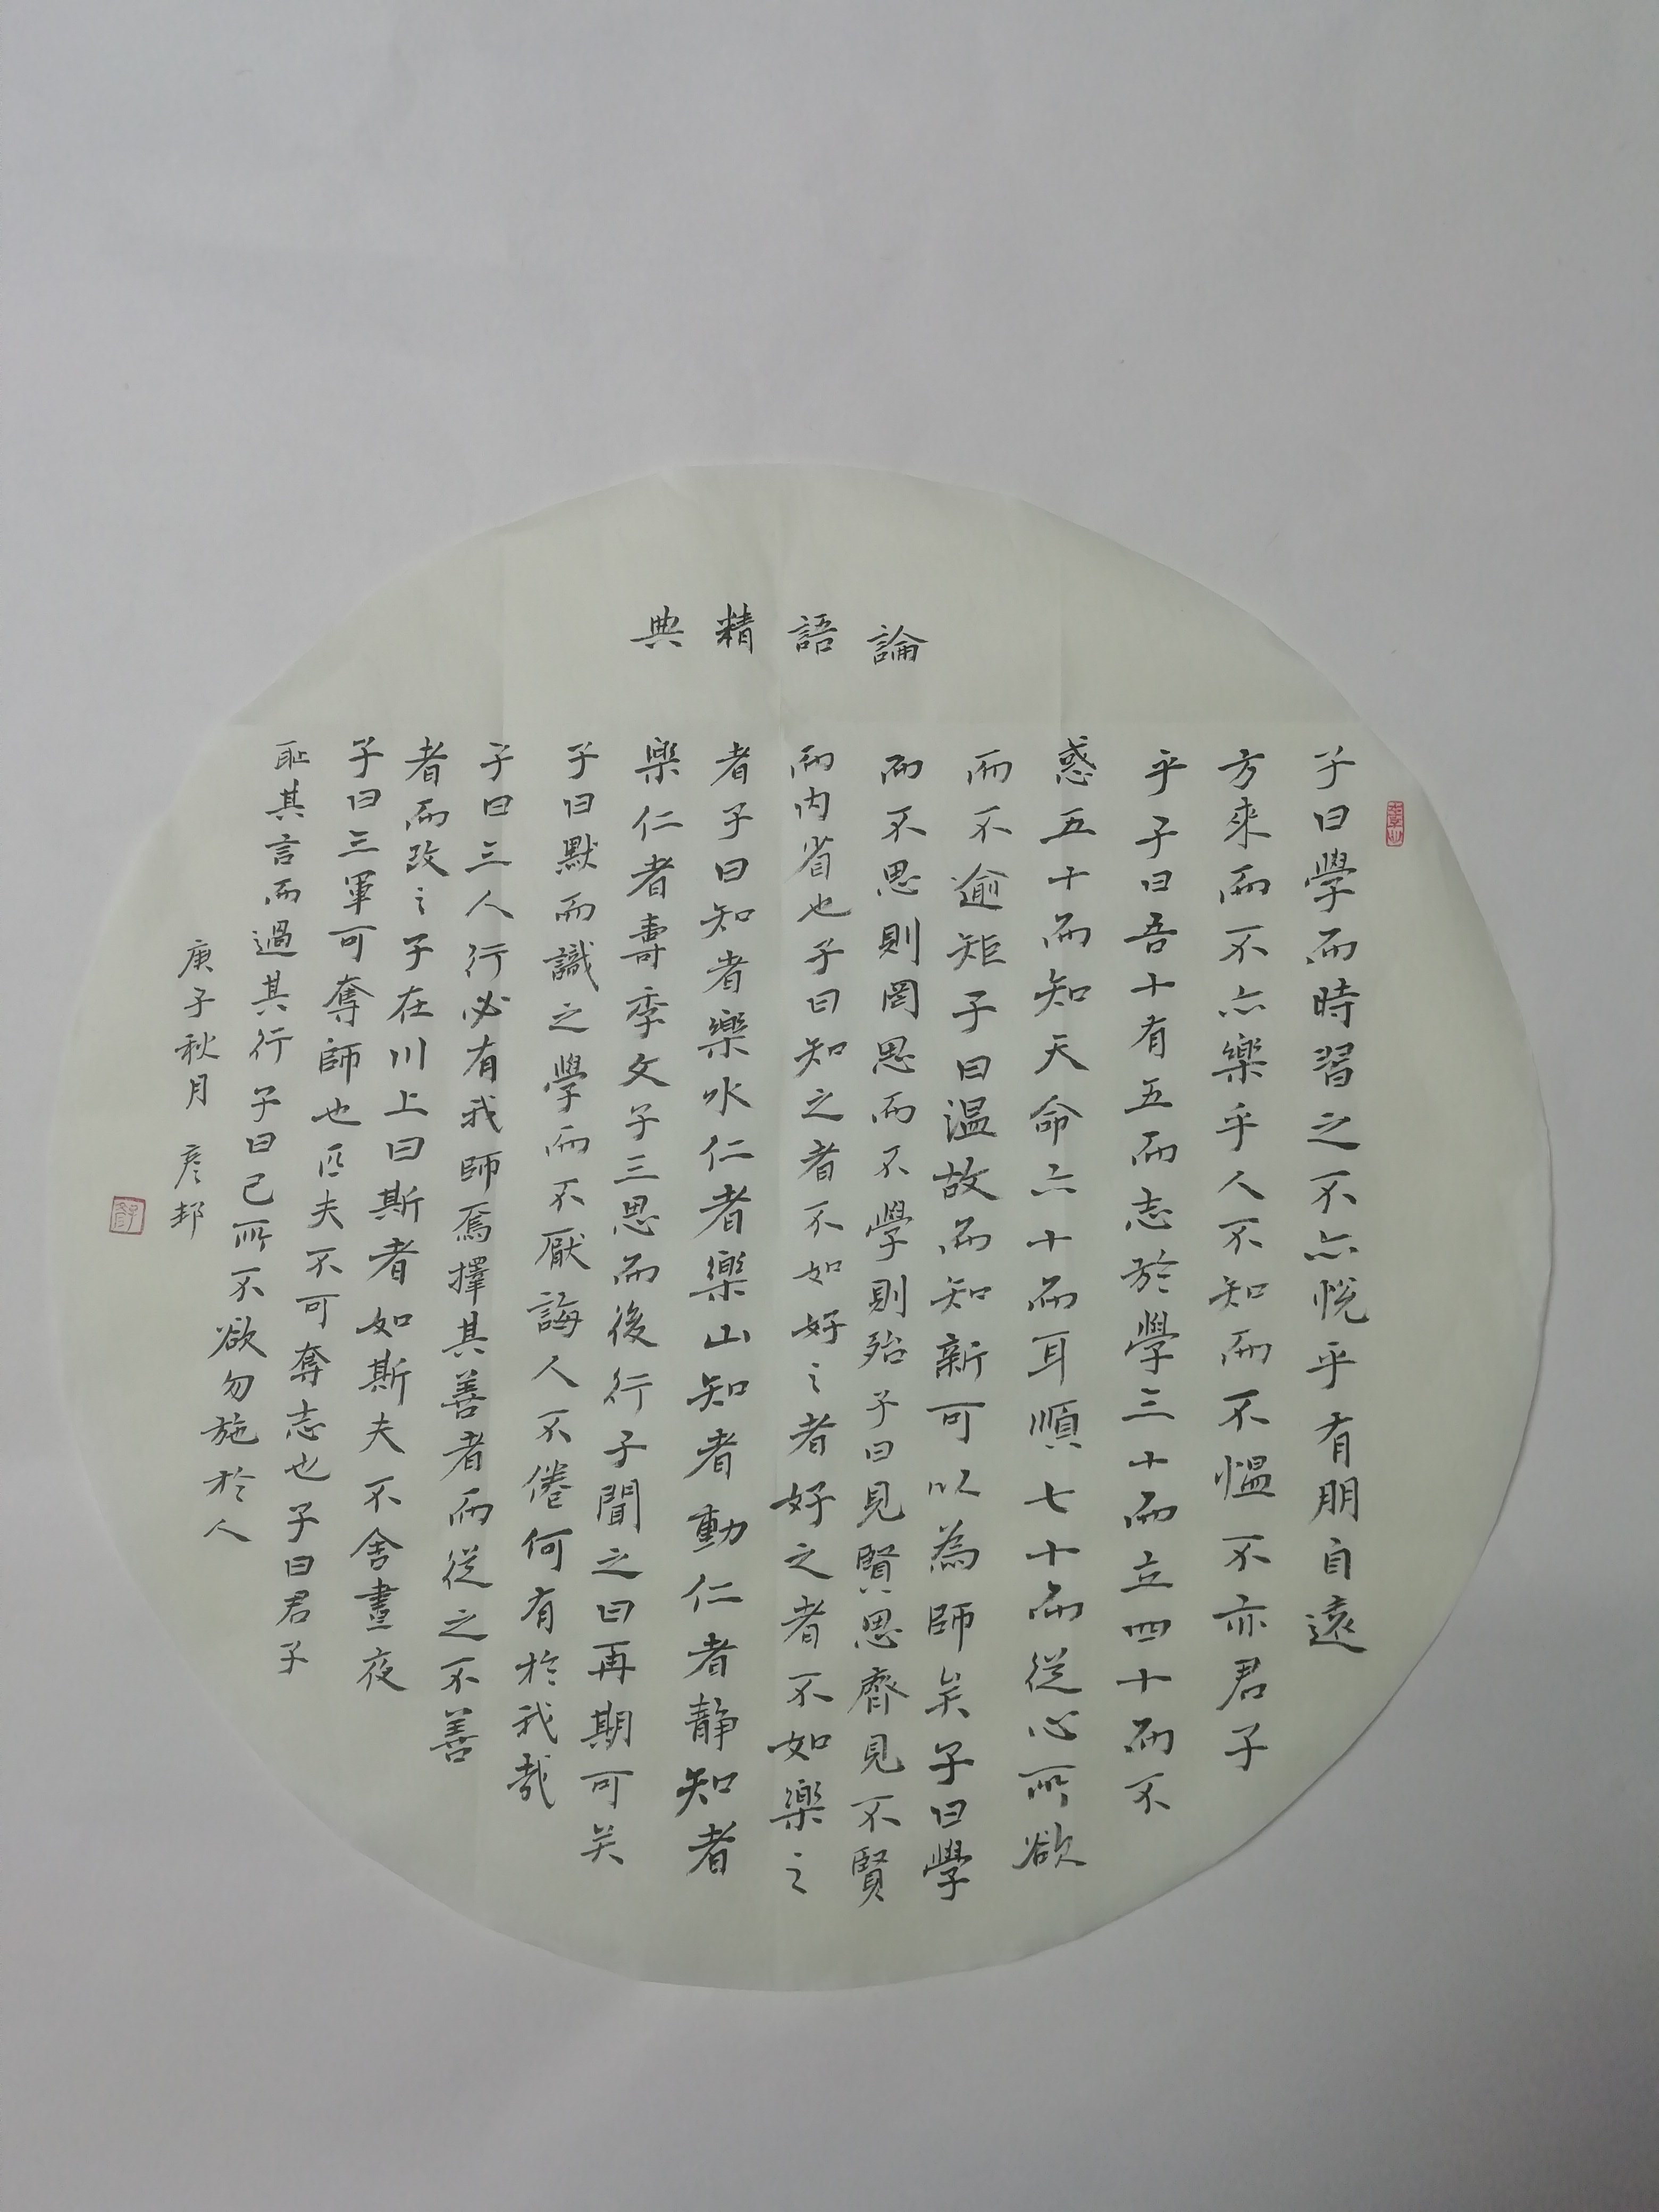 論語精典
子曰學而時習之不亦悅乎有朋自遠
方來而不亦樂乎人不知而不愠不亦君子
乎子曰吾十有五而志於學三十而立四十而不
惑五十而知天命六十而耳順七十而從心所欲
而不逾矩子曰温故而知新可以為師矣子曰學
而不思則罔思而不學則殆子曰見賢思齊見不賢
而內省也子曰知之者不如好之者好之者不如樂之
者子曰知者樂水仁者樂山知者動仁者静知者
樂仁者壽季文子三思而後行子聞之曰再期可矣
子曰默而識之學而不厭誨人不倦何有於我哉
子曰三人行必有我師焉擇其善者而從之不善
者而改之子在川上曰斯者如斯夫不舍晝夜
子曰三軍可奪師也匹夫不可奪志也子曰君子
恥其言而過其行子曰己所不欲勿施於人
庚子秋月 彦邦